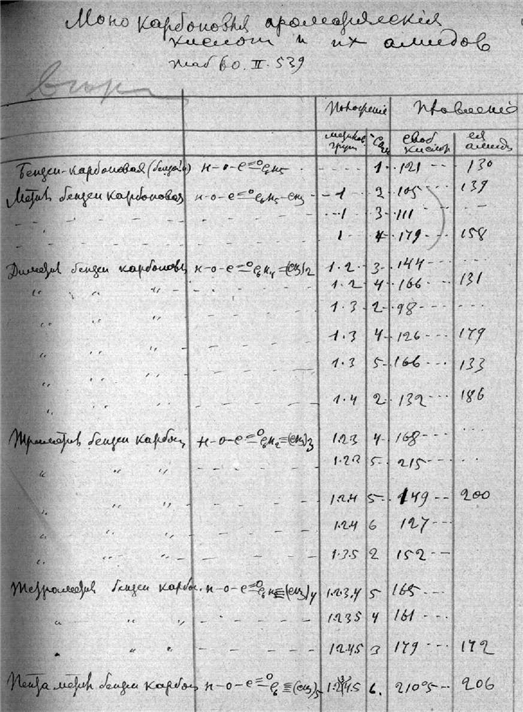 Моно карбоновыя ароматическiя
кислот и их амидов
таб 60. II. 539
Положенiе Плавленiе
метил. групп своб кислот ея амида
Бензен-карбоновая (бензойн) H-O-C=O C6H5 1 121 130
Метил бензен карбоновая H-O-C=O C6H4-CH3 1 2 105 139
1 3 111
1 4 179 158
Диметил бензен карбонов H-O-C=O =(CH3)2 1.2 3 144
" " " 1.2 4 166 131
" " 1.3 2 98
" " " 1.3 4 126 179
" " 1.3 5 166 133
" " " 1.4 2 132 186
Триметил бензен карбон H-O-C=O C6H2≡(CH3)3 1.2.3 4 168
" " " 5 215
" " " 1.2.4 5 149 200
" " 1.2.4 6 127
" " " 1.3.5 2 152
Тетраметил бензен карбо. H-O-C=O (CH3)4 1.2.3.4 5 165
" " " 1.2.3.5 4 161
" " " 1.2.4.5 3 179 172
Пента метил бензен карбон H-O-C=O C6≡(CH3)5 6. 210°5 206